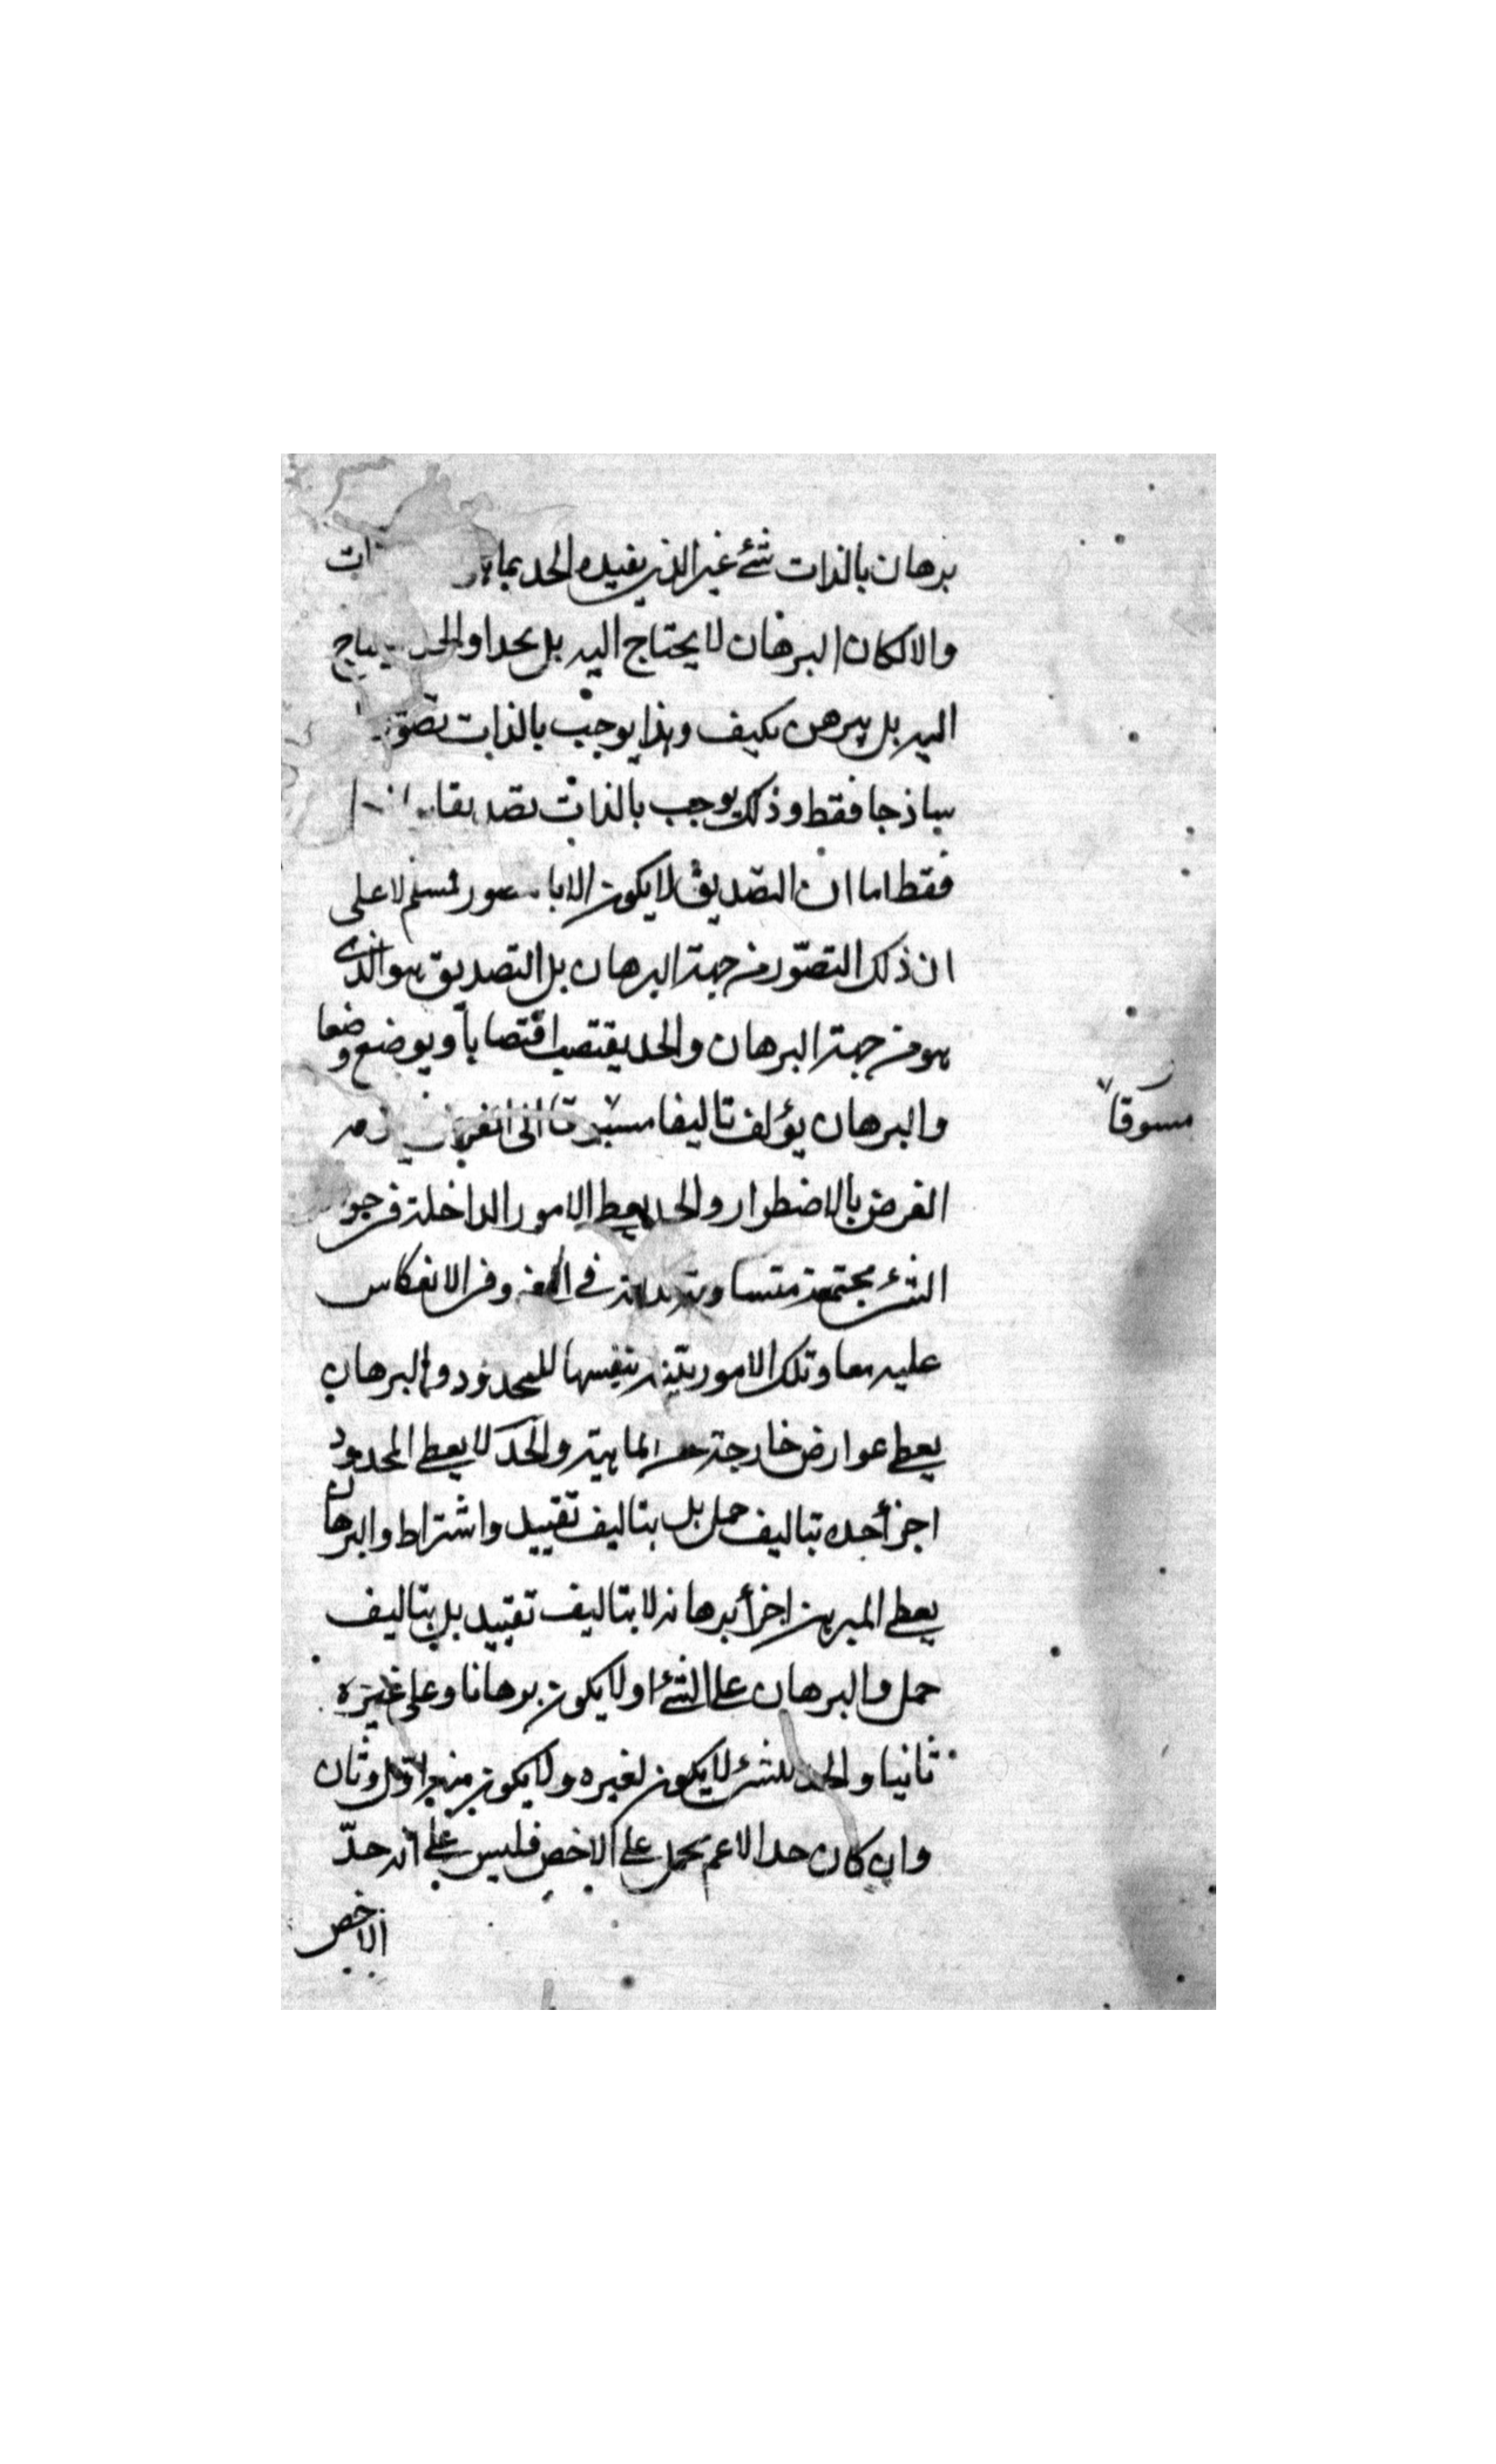 برهان بالذات شئ غير الذى يفيده الحد بما
والا لكان البرهان لا يحتاج اليه بل يحد او الحد يحتاج
اليه بل يبرهن كيف وهذا يوجب بالذات تصورا
ساذجا فقط وذلك يوجب بالذات تصديقا
فقط اما ان التصديق لا يكون الا بالتصور فمسلم لا على
ان ذلك التصوّر من جهة البرهان بل التصديق هو الذى
هو من جهة البرهان والحد يقتضب اقتضابا ويوضع وضعا
والبرهان يؤلف تاليفا مسوقا الى الغرض
مسوقا
الغرض بالاضطرار والحد يعطى الامور الداخلة فى جوهر
الشئ مجتمعة متساوية فى وفى الانعكاس
عليه معا وتلك الامور بيّنة بنفسها للمحدود والبرهان
يعطى عوارض خارجة عن الماهية والحد لا يعطى المحدود
اجزأ حده بتاليف حمل بل بتاليف تقييد واشتراط والبرهان
يعطى المبرهن اجزأ برهانه لا بتاليف تقييد بل بتاليف
حمل والبرهان على الشئ اولا يكون برهانا وعلى غيره
ثانيا والحد للشئ لا يكون لغيره ولا يكون منه اوّل وثان
وان كان حد الاعم يحمل على الاخص فليس على انه حدّ
الاخص